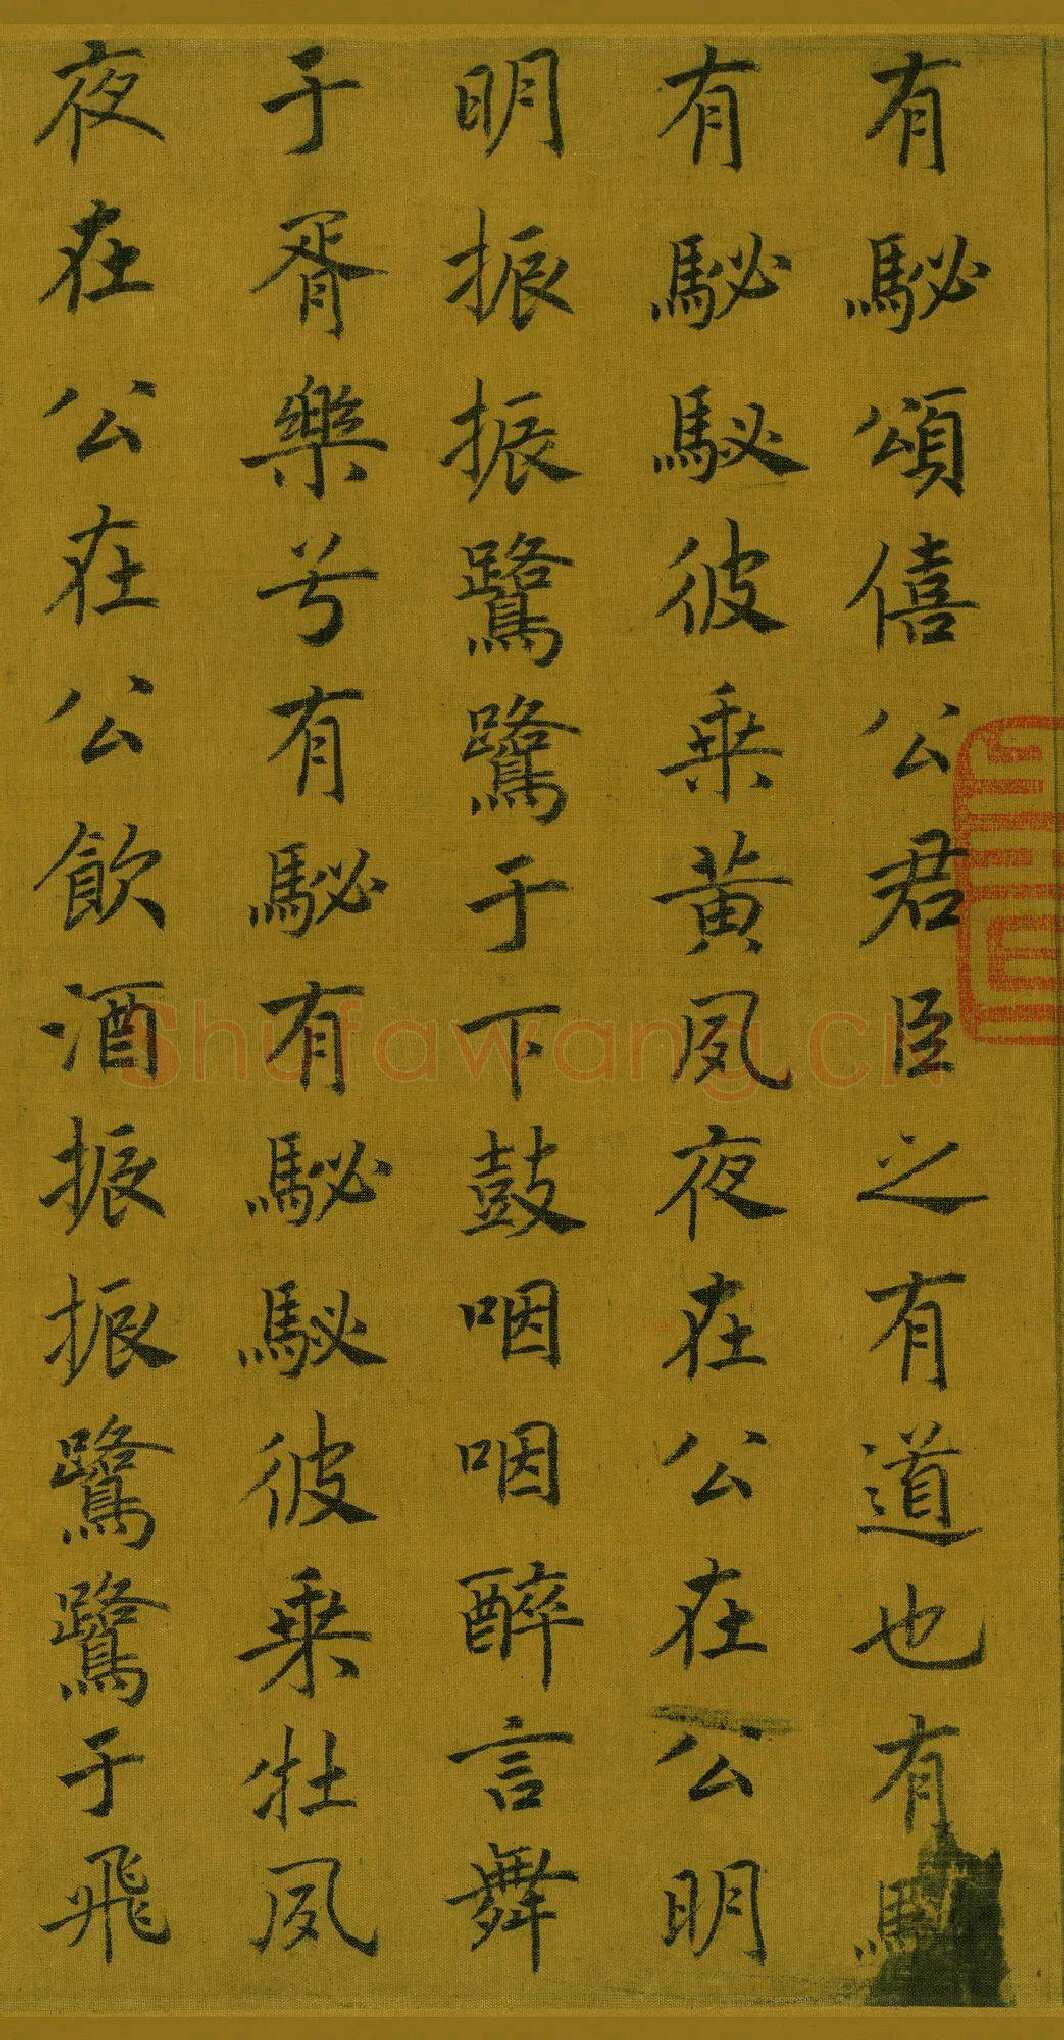 有駜頌僖公君臣之有道也有
有駜駜彼乗黃夙夜在公在公明
明振振鷺鷺于下鼓咽咽醉言舞
于胥樂兮有駜有駜駜彼乗牡夙
夜在公在公飲酒振振鷺鷺于飛
Shufawang.cn